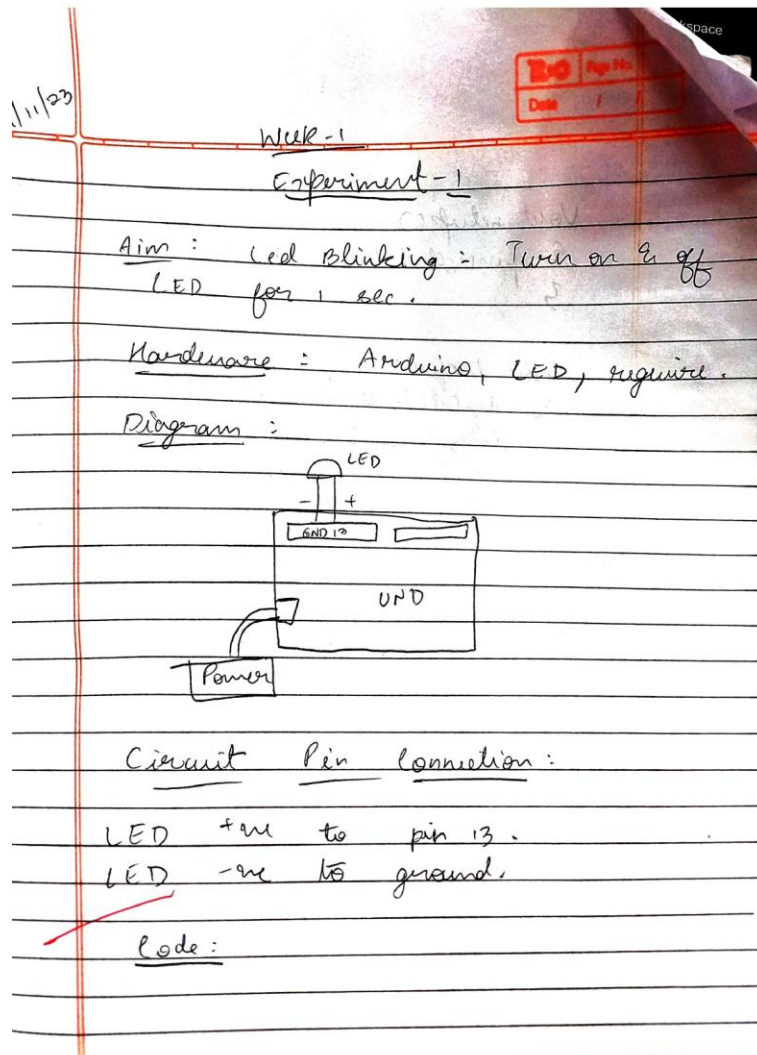 kspace
R&O Page No
Date / /
/11/23
Week-1
Experiment-1
Aim : Led Blinking : Turn on & off
LED for 1 sec.
Hardware : Arduino, LED, require.
Diagram :
LED
- +
GND 13
UNO
Power
Circuit Pin Connection :
LED +ve to pin 13.
LED -ve to ground.
Code :